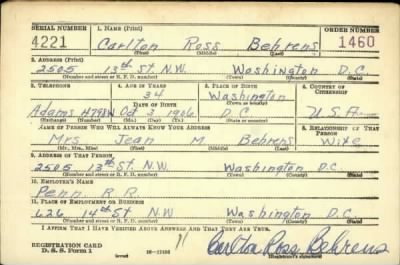 SERIAL NUMBER 1. NAME (Print) ORDER NUMBER
4221 Carlton Ross Behrens 1460
(First) (Middle) (Last)
2. ADDRESS (Print)
2505 13th St. N.W. Washington D.C.
(Number and street or R. F. D. number) (Town) (County) (State)
3. TELEPHONE 4. AGE IN YEARS 5. PLACE OF BIRTH 6. COUNTRY OF CITIZENSHIP
34 Washington
DATE OF BIRTH (Town or county)
Adams Oct 3 1906 D.C. U.S.A.
(Exchange) (Number) (Mo.) (Day) (Yr.) (State or country)
7. NAME OF PERSON WHO WILL ALWAYS KNOW YOUR ADDRESS 8. RELATIONSHIP OF THAT PERSON
Mrs Jean M Behrens Wife
(Mr., Mrs., Miss) (First) (Middle) (Last)
9. ADDRESS OF THAT PERSON
2505 13th St. N.W. Washington D.C.
(Number and street or R. F. D. number) (Town) (County) (State)
10. EMPLOYER'S NAME
Penn. R.R.
11. PLACE OF EMPLOYMENT OR BUSINESS
626 14th St. N.W. Washington D.C.
(Number and street or R. F. D. number) (Town) (County) (State)
I AFFIRM THAT I HAVE VERIFIED ABOVE ANSWERS AND THAT THEY ARE TRUE.
REGISTRATION CARD
D. S. S. Form 1 Carlton Ross Behrens
(over) 16—17105 (Registrant's signature)